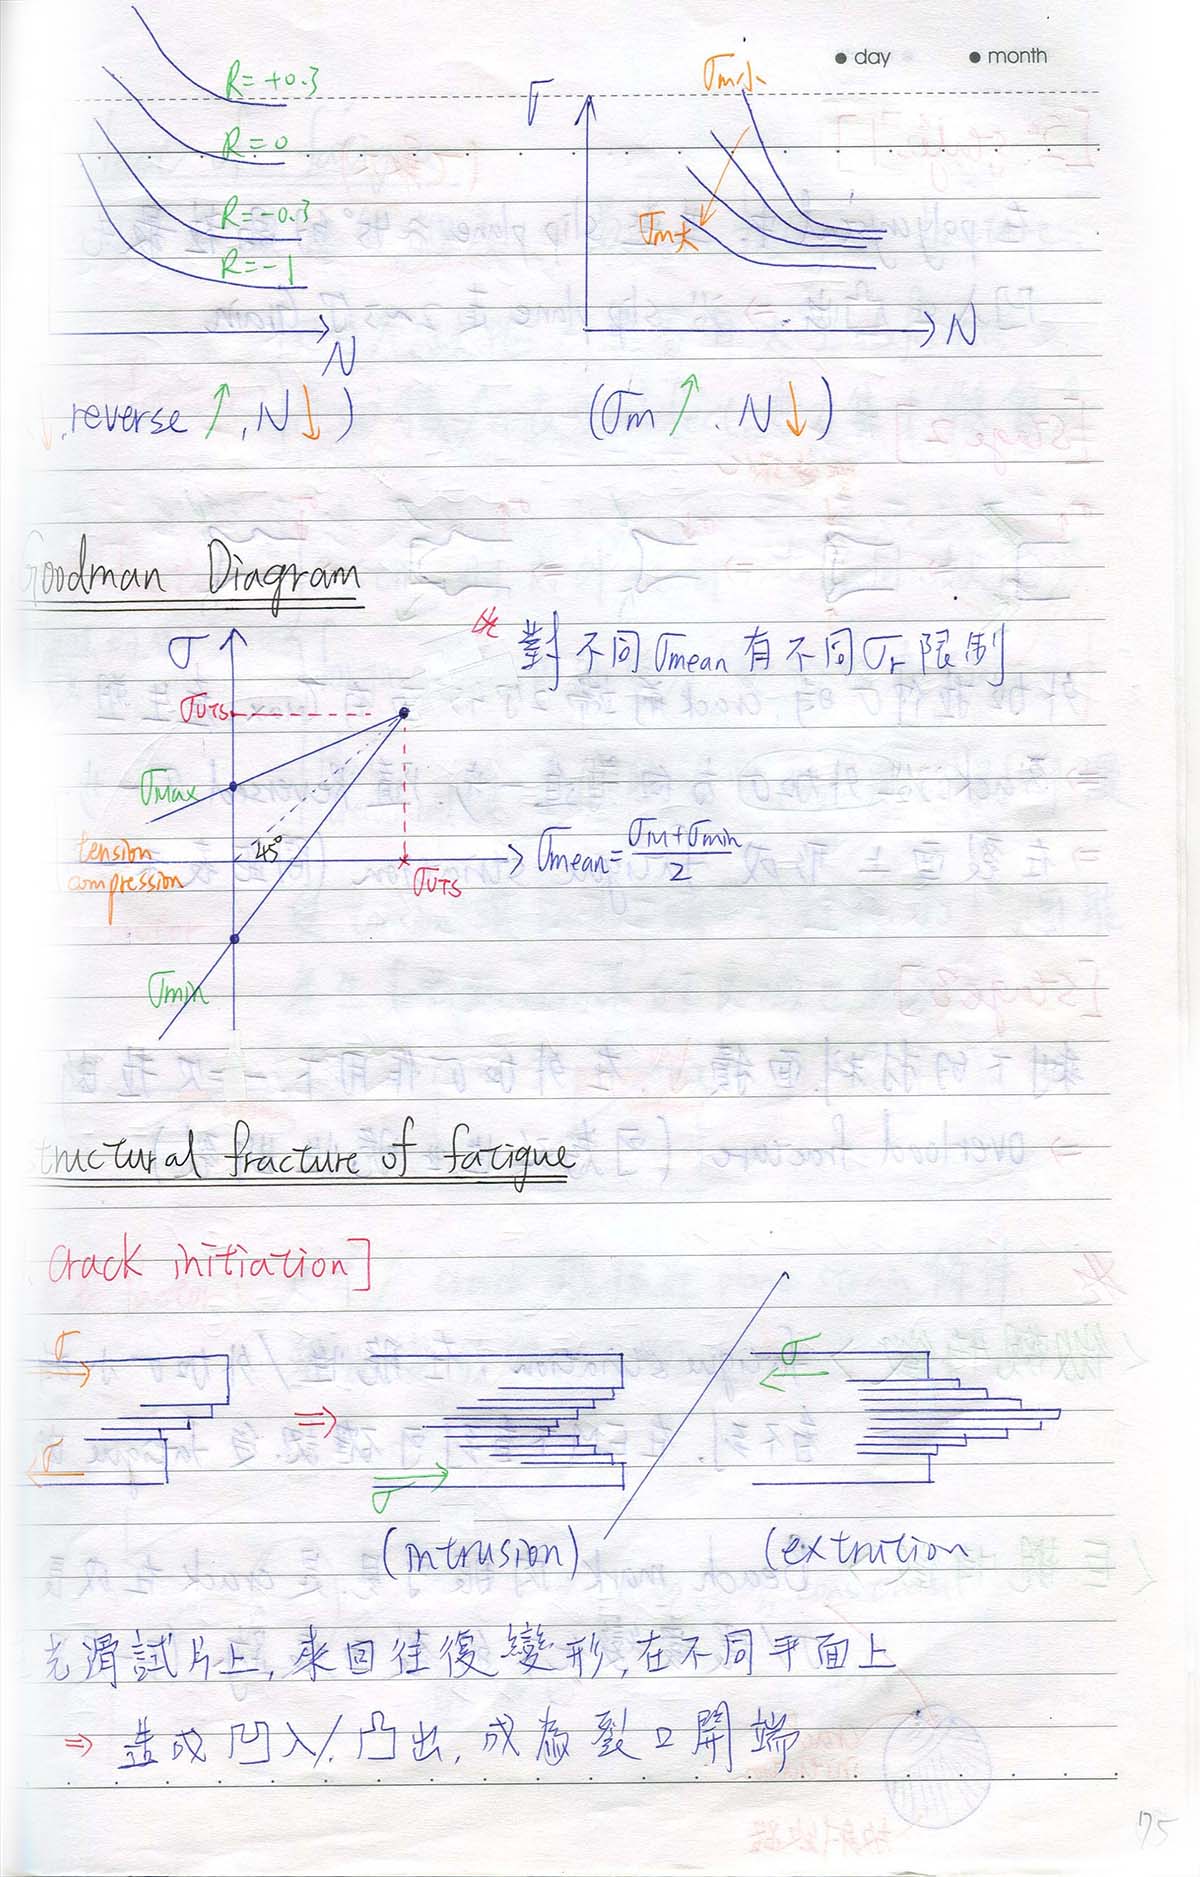 day month
R=+0.3
R=0
R=-0.3
R=-1
N
σ
σm小
σm大
N
reverse ↑, N↓)
(σm↑. N↓)
Goodman Diagram
對不同σmean有不同σr限制
σ
σUTS
σMax
tension
compression
45°
σUTS
σmean=(σM+σmin)/2
σmin
structural fracture of fatigue
crack initiation]
σ
σ
⇒
σ
(intrusion)
σ
(extrution
光滑試片上,來回往復變形,在不同平面上
⇒ 造成凹入/凸出,成為裂口開端
75